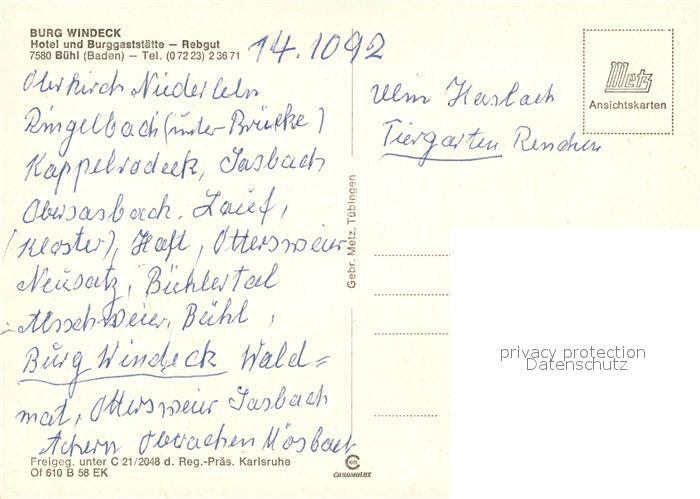 BURG WINDECK
Hotel und Burggaststätte – Rebgut
7580 Bühl (Baden) – Tel. (0 72 23) 2 36 71
14.1092
Oberkirch Niederlehn
Ringelbach (unter Brücke)
Kappelrodeck, Sasbach
Obersasbach, Lauf,
(Kloster), Haft, Ottersweier
Neusatz, Bühlertal
Altschweier, Bühl,
Burg Windeck Wald=
mat, Ottersweier Sasbach
Achern Oberachern Mösbach
Freigeg. unter C 21/2048 d. Reg.-Präs. Karlsruhe
Of 610 B 58 EK
CHROMOLUX
Gebr. Metz, Tübingen
Metz
Ansichtskarten
Ulm Haslach
Tiergarten Renchen
privacy protection
Datenschutz